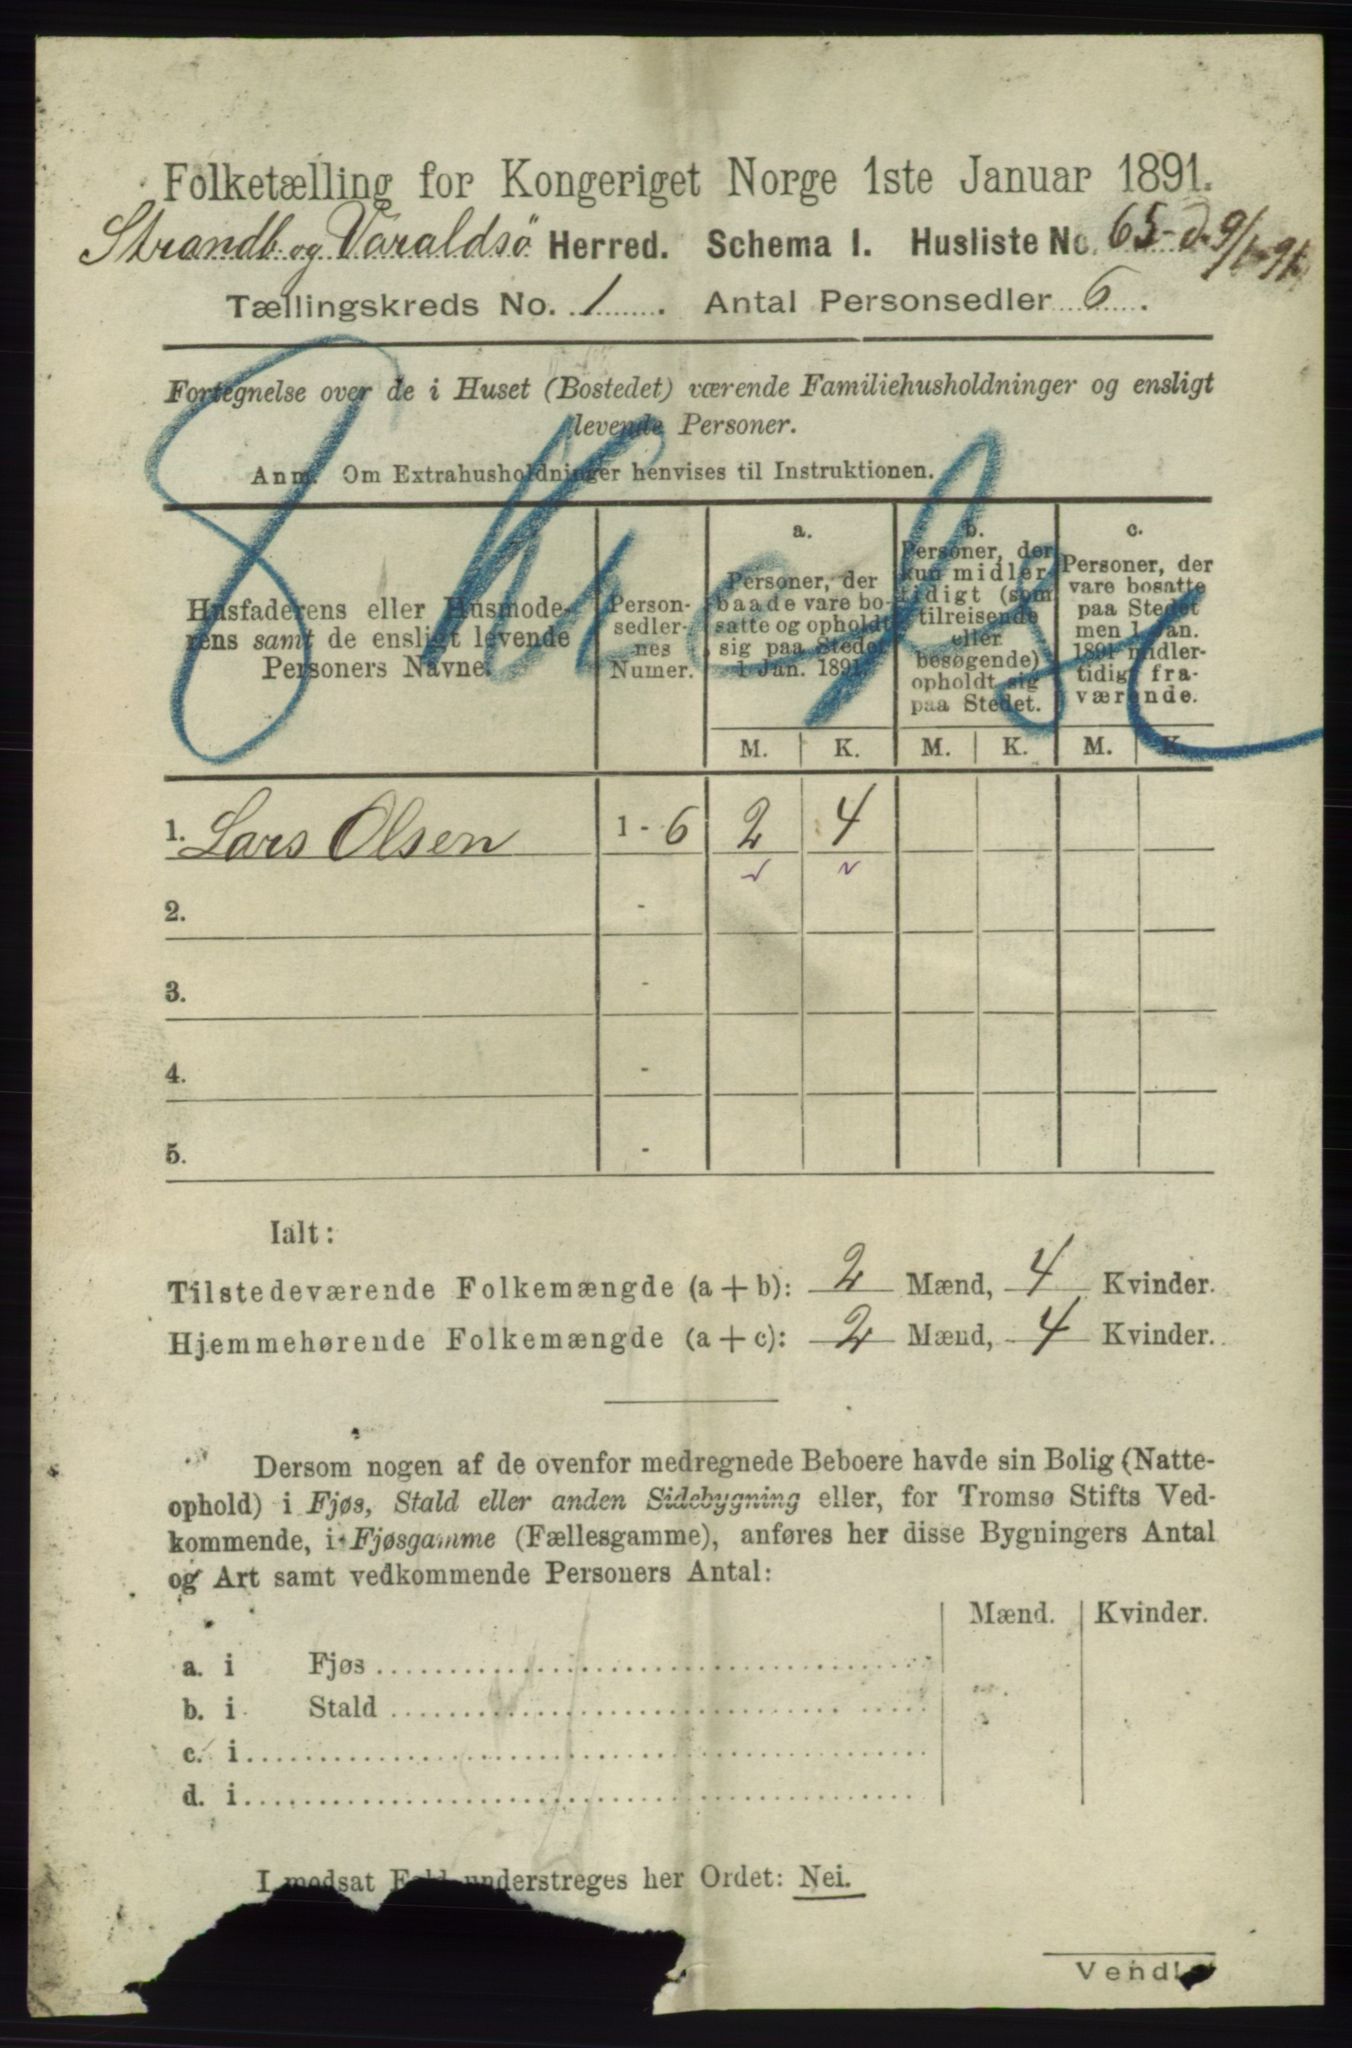 Folketælling for Kongeriget Norge 1ste Januar 1891.
Strandb. og Varaldsö Herred. Schema I. Husliste No. 65
Tællingskreds No. 1. Antal Personsedler 6.
Fortegnelse over de i Huset (Bostedet) værende Familiehusholdninger og ensligt
levende Personer.
Anm. Om Extrahusholdninger henvises til Instruktionen.
Husfaderens eller Husmode-
rens samt de ensligt levende
Personers Navne.
Person-
sedler-
nes
Numer.
a.
Personer, der
baade vare bo-
satte og opholdt
sig paa Stedet
1 Jan. 1891.
b.
Personer, der
kun midler-
tidigt (som
tilreisende
eller
besøgende)
opholdt sig
paa Stedet.
c.
Personer, der
vare bosatte
paa Stedet
men 1 Jan.
1891 midler-
tidig fra-
værende.
M. K. M. K. M. K.
1. Lars Olsen 1 - 6 2 4
2. -
3. -
4. -
5. -
Ialt:
Tilstedeværende Folkemængde (a + b): 2 Mænd, 4 Kvinder.
Hjemmehørende Folkemængde (a + c): 2 Mænd, 4 Kvinder.
Dersom nogen af de ovenfor medregnede Beboere havde sin Bolig (Natte-
ophold) i Fjøs, Stald eller anden Sidebygning eller, for Tromsø Stifts Ved-
kommende, i Fjøsgamme (Fællesgamme), anføres her disse Bygningers Antal
og Art samt vedkommende Personers Antal:
Mænd. Kvinder.
a. i Fjøs
b. i Stald
c. i
d. i
I modsat Fald understreges her Ordet: Nei.
Vend!